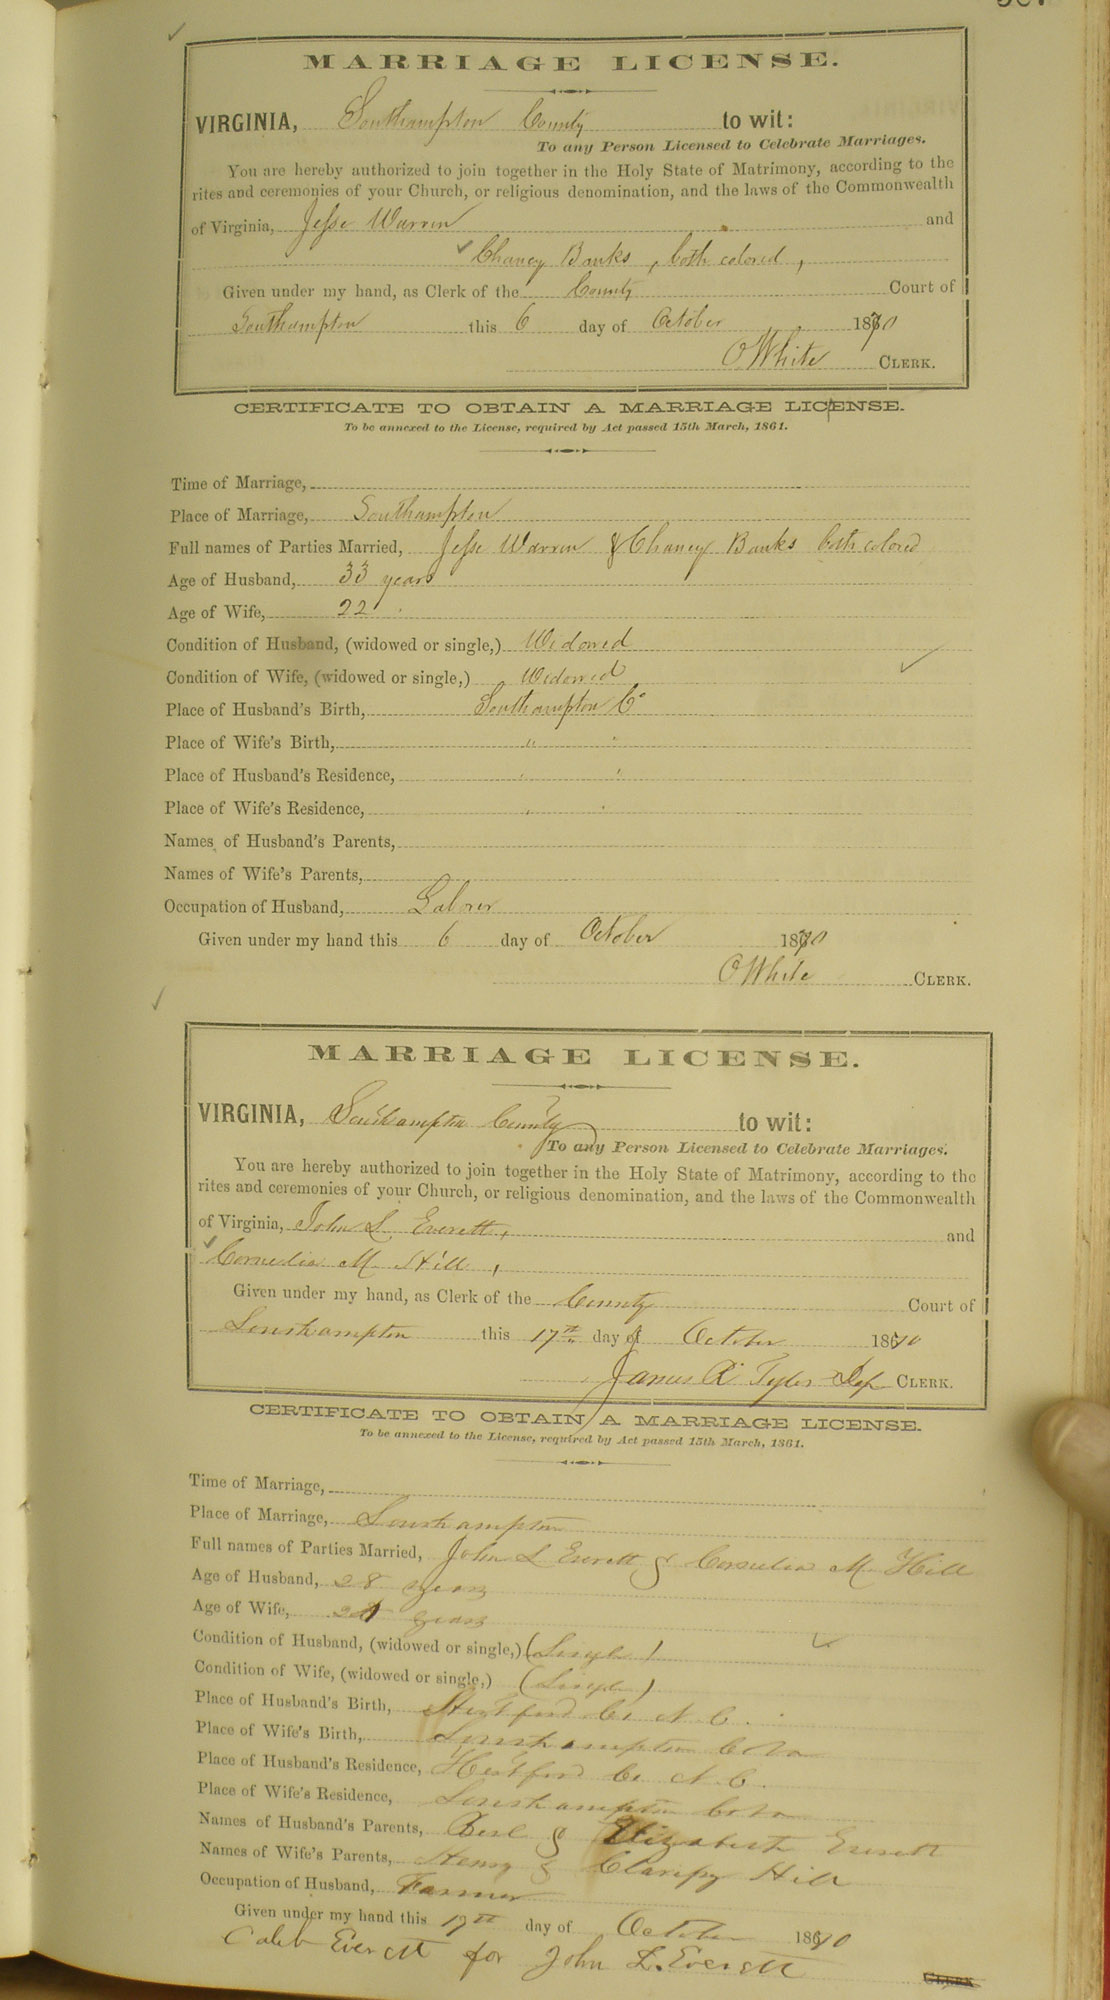 MARRIAGE LICENSE.
VIRGINIA, Southampton County to wit:
To any Person Licensed to Celebrate Marriages.
You are hereby authorized to join together in the Holy State of Matrimony, according to the
rites and ceremonies of your Church, or religious denomination, and the laws of the Commonwealth
of Virginia, Jesse Warren and
Chaney Banks, both colored,
Given under my hand, as Clerk of the County Court of
Southampton this 6 day of October 1870
O White CLERK.
CERTIFICATE TO OBTAIN A MARRIAGE LICENSE.
To be annexed to the License, required by Act passed 15th March, 1861.
Time of Marriage,
Place of Marriage, Southampton
Full names of Parties Married, Jesse Warren & Chaney Banks both colored
Age of Husband, 33 years
Age of Wife, 22 "
Condition of Husband, (widowed or single,) Widowed
Condition of Wife, (widowed or single,) Widowed
Place of Husband's Birth, Southampton Co
Place of Wife's Birth, " "
Place of Husband's Residence, " "
Place of Wife's Residence, " "
Names of Husband's Parents,
Names of Wife's Parents,
Occupation of Husband, Laborer
Given under my hand this 6 day of October 1870
O White CLERK.
MARRIAGE LICENSE.
VIRGINIA, Southampton County to wit:
To any Person Licensed to Celebrate Marriages.
You are hereby authorized to join together in the Holy State of Matrimony, according to the
rites and ceremonies of your Church, or religious denomination, and the laws of the Commonwealth
of Virginia, John L. Everett, and
Cornelia M. Hill,
Given under my hand, as Clerk of the County Court of
Southampton this 17th day of October 1870
James R Tyler Dep CLERK.
CERTIFICATE TO OBTAIN A MARRIAGE LICENSE.
To be annexed to the License, required by Act passed 15th March, 1861.
Time of Marriage,
Place of Marriage, Southampton
Full names of Parties Married, John L Everett & Cornelia M Hill
Age of Husband, 28 years
Age of Wife, years
Condition of Husband, (widowed or single,) (Single)
Condition of Wife, (widowed or single,) (Single)
Place of Husband's Birth, Hertford Co N.C.
Place of Wife's Birth, Southampton Co Va
Place of Husband's Residence, Hertford Co N.C.
Place of Wife's Residence, Southampton Co Va
Names of Husband's Parents, & Elizabeth Everett
Names of Wife's Parents, Henry & Hill
Occupation of Husband, Farmer
Given under my hand this 17th day of October 1870
Caleb Everett for John L. Everett
CLERK